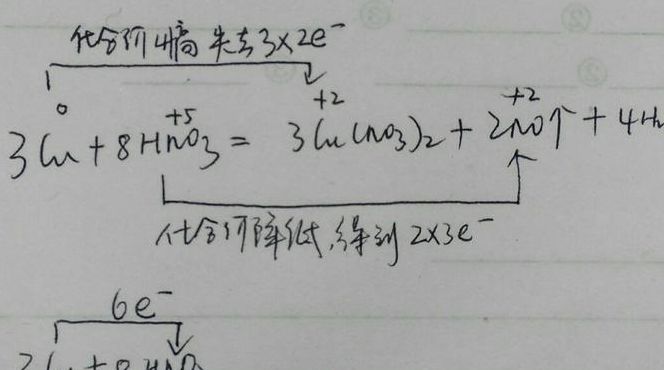 化合价升高 失去3×2e⁻
0 +5 +2 +2
3Cu + 8HNO₃ = 3Cu(NO₃)₂ + 2NO↑ + 4H₂
化合价降低,得到2×3e⁻
6e⁻
3Cu + 8HNO₃